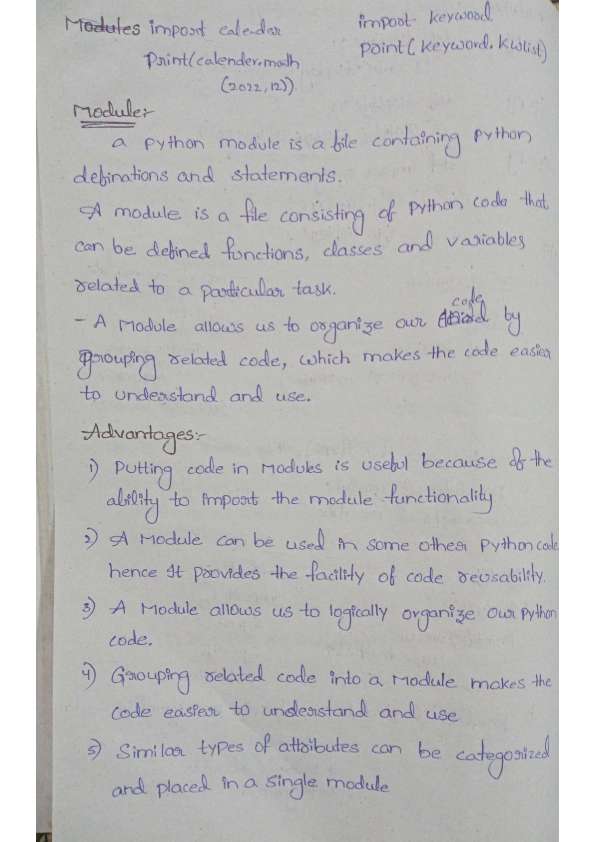 Modules import calendar
Print(calender.math
(2022,12))
import keyword
point(keyword.kwlist)
Module:-
a python module is a file containing python
definations and statements.
A module is a file consisting of python code that
can be defined functions, classes and variables
related to a particular task.
- A Module allows us to organize our code by
grouping related code, which makes the code easier
to understand and use.
Advantages:-
1) Putting code in Modules is useful because of the
ability to import the module functionality
2) A Module can be used in some other Python code
hence It provides the facility of code reusability.
3) A Module allows us to logically organize our Python
code.
4) Grouping related code into a Module makes the
code easier to understand and use
5) Similar types of attributes can be categorized
and placed in a single module